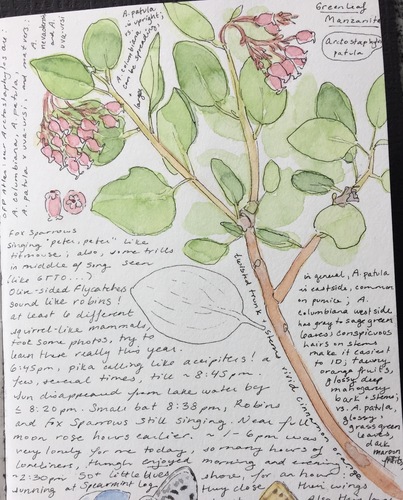 Greenleaf
Manzanita
Arctostaphylos
patula
A. patula
is upright;
A. columbiana
can be spreading,
large
A.
nevadensis
and A.
uva-ursi
our Arctostaphylos are:
A. columbiana, A. patula,
A. patula x uva-ursi, and
Fox Sparrows
singing "peter, peter" like
titmouse; also, some trills
in middle of song seem
(like GTTO...)
Olive-sided Flycatchers
sound like robins!
at least 6 different
squirrel-like mammals,
took some photos, try to
learn these really this year.
6:45pm, pika calling like accipiters! a
few, several times, till ~8:45pm
Sun disappeared from lake water by
≤ 8:20pm. Small bat 8:38pm, Robins
and Fox Sparrows still singing. Near full
moon rose hours earlier. 1-6pm was
very lonely for me today, so many hours of
loneliness, though enjoyed morning and evening
~2:30pm Sat little blues shore, for an hour
sunning at Spearmint Log they close their wings
twisted trunk + stems vivid cinnamon
in general, A. patula
is eastside, common
on pumice; A.
columbiana west side
has grey to sage green
leaves; conspicuous
hairs on stems
make it easiest
to ID; tawny-
orange fruits,
glossy deep
mahogany
bark + stems;
vs. A. patula,
glossy
grass green
leaves,
dark
maroon
fruits